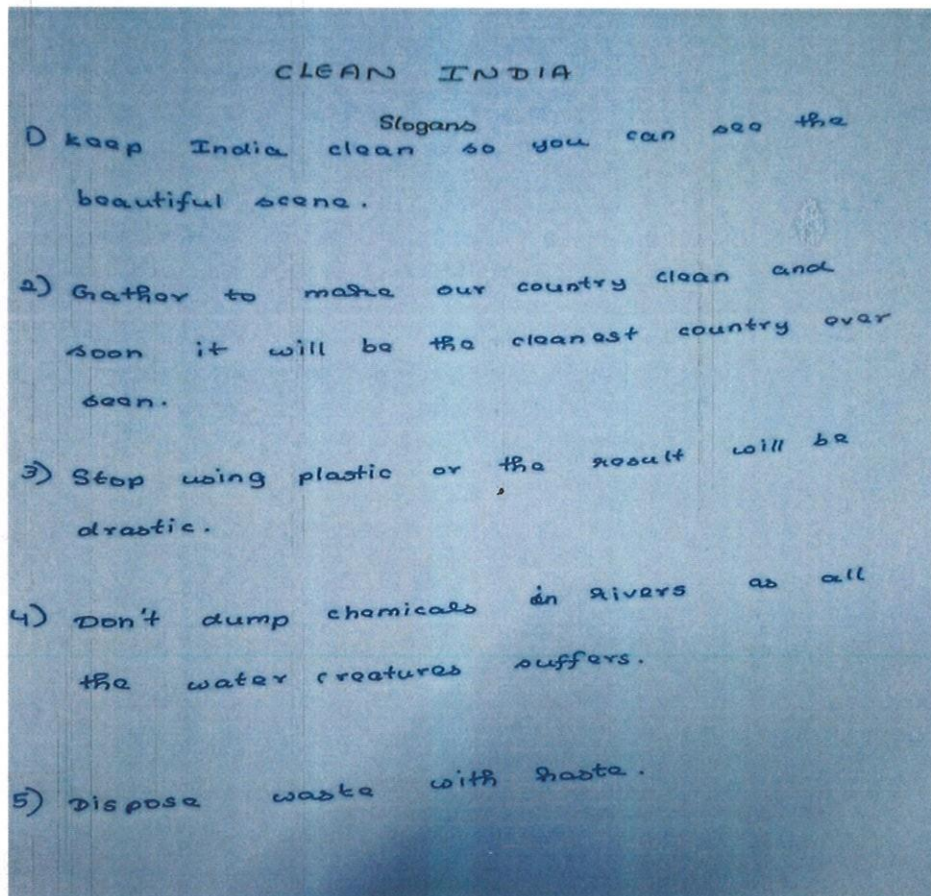 CLEAN INDIA
Slogans
1) keep India clean so you can see the
beautiful scene.
2) Gather to make our country clean and
soon it will be the cleanest country ever
seen.
3) Stop using plastic or the result will be
drastic.
4) Don't dump chemicals in rivers as all
the water creatures suffers.
5) Dispose waste with haste.